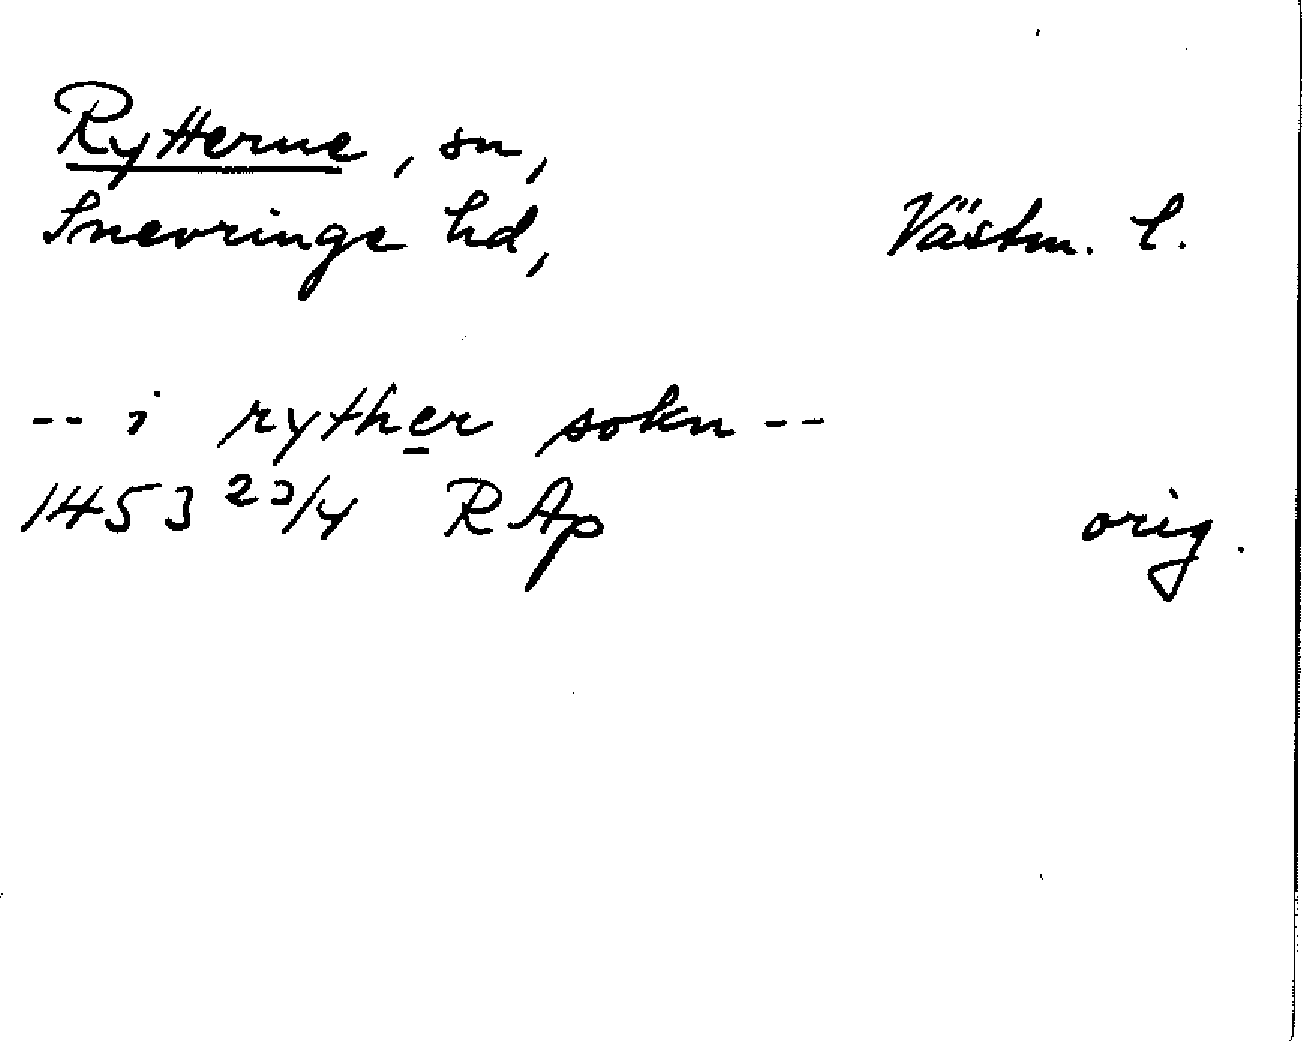 Rytterne, sn,
Snevringe hd, Västm. l.
-- i ryther sokn --
1453 23/4 RAp orig.